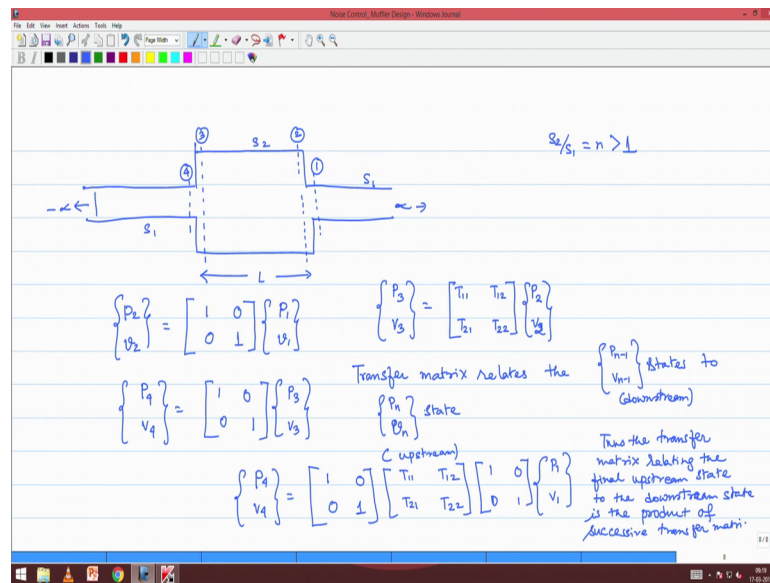 Noise Control_Muffler Design - Windows Journal
File Edit View Insert Actions Tools Help
Page Width
B I
③ S2 ②
S2/S1 = n > 1
④ ① S1
-∝ ← ∝ →
S1
← L →
{P2 v2} = [1 0 0 1] {P1 v1}
{P3 V3} = [T11 T12 T21 T22] {P2 V2}
Transfer matrix relates the {Pn-1 Vn-1} states to
(downstream)
{Pn vn} state
(upstream)
{P4 V4} = [1 0 0 1] {P3 V3}
{P4 V4} = [1 0 0 1] [T11 T12 T21 T22] [1 0 0 1] {P1 V1}
Thus the transfer
matrix relating the
final upstream state
to the downstream state
is the product of
successive transfer matri.
8/8
8
09:19
17-03-20